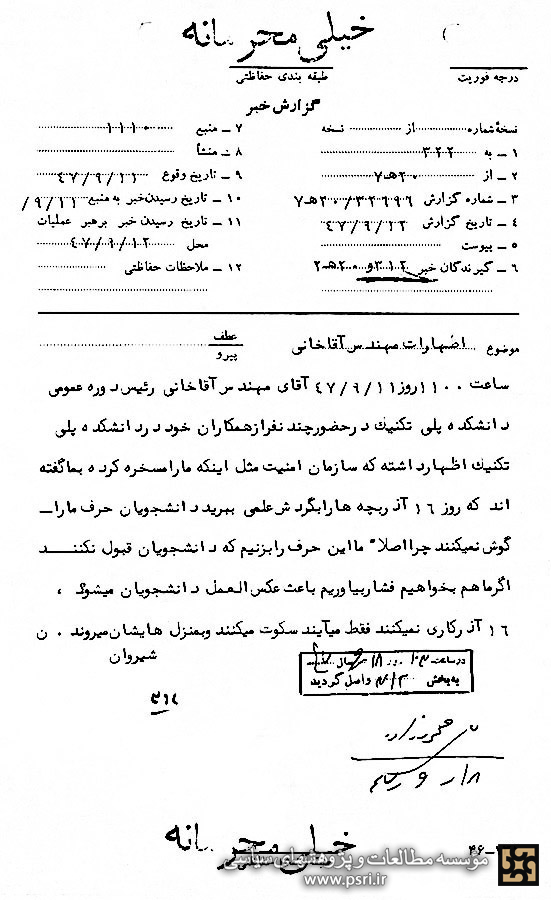 خیلی محرمانه
درجه فوریت
طبقه بندی حفاظتی
گزارش خبر
نسخهٔ شماره از نسخه
۱ــ به ۳۲۲
۲ــ از ۲۰ هـ ۷
۳ــ شماره گزارش ۲۰/۳۲۶۹۶ هـ ۷
۴ــ تاریخ گزارش ۴۷/۹/۱۲
۵ــ پیوست
۶ــ گیرندگان خبر ۳۱۲ و ۲۰ هـ ۲
۷ــ منبع ۱۱۱۰
۸ــ منشأ
۹ــ تاریخ وقوع ۴۷/۹/۱۱
۱۰ــ تاریخ رسیدن خبر به منبع ۹/۱۱/
۱۱ــ تاریخ رسیدن خبر برهبر عملیات
محل ۴۷/۹/۱۲
۱۲ــ ملاحظات حفاظتی
موضوع اضهارات مهندس آقاخانی
عطف
پیرو
ساعت ۱۱۰۰ روز ۴۷/۹/۱۱ آقای مهندس آقاخانی رئیس دوره عمومی
دانشکده پلی تکنیک در حضور چند نفر از همکاران خود در دانشکده پلی
تکنیک اظهار داشته که سازمان امنیت مثل اینکه ما را مسخره کرده بما گفته
اند که روز ۱۶ آذر بچه ها را بگردش علمی ببرید دانشجویان حرف ما را ــ
گوش نمیکنند چرا اصلا" ما این حرف را بزنیم که دانشجویان قبول نکننــــد
اگر ما هم بخواهیم فشار بیاوریم باعث عکس العمل دانشجویان میشود ،
۱۶ آذر کاری نمیکنند فقط میآیند سکوت میکنند و بمنزل هایشان میروند . ن
شیروان
در ساعت روز ۱۸ سال
به بخش واصل گردید
خیلی محرمانه
۴۶ــ
موسسه مطالعات و پژوهشهای سیاسی
www.psri.ir